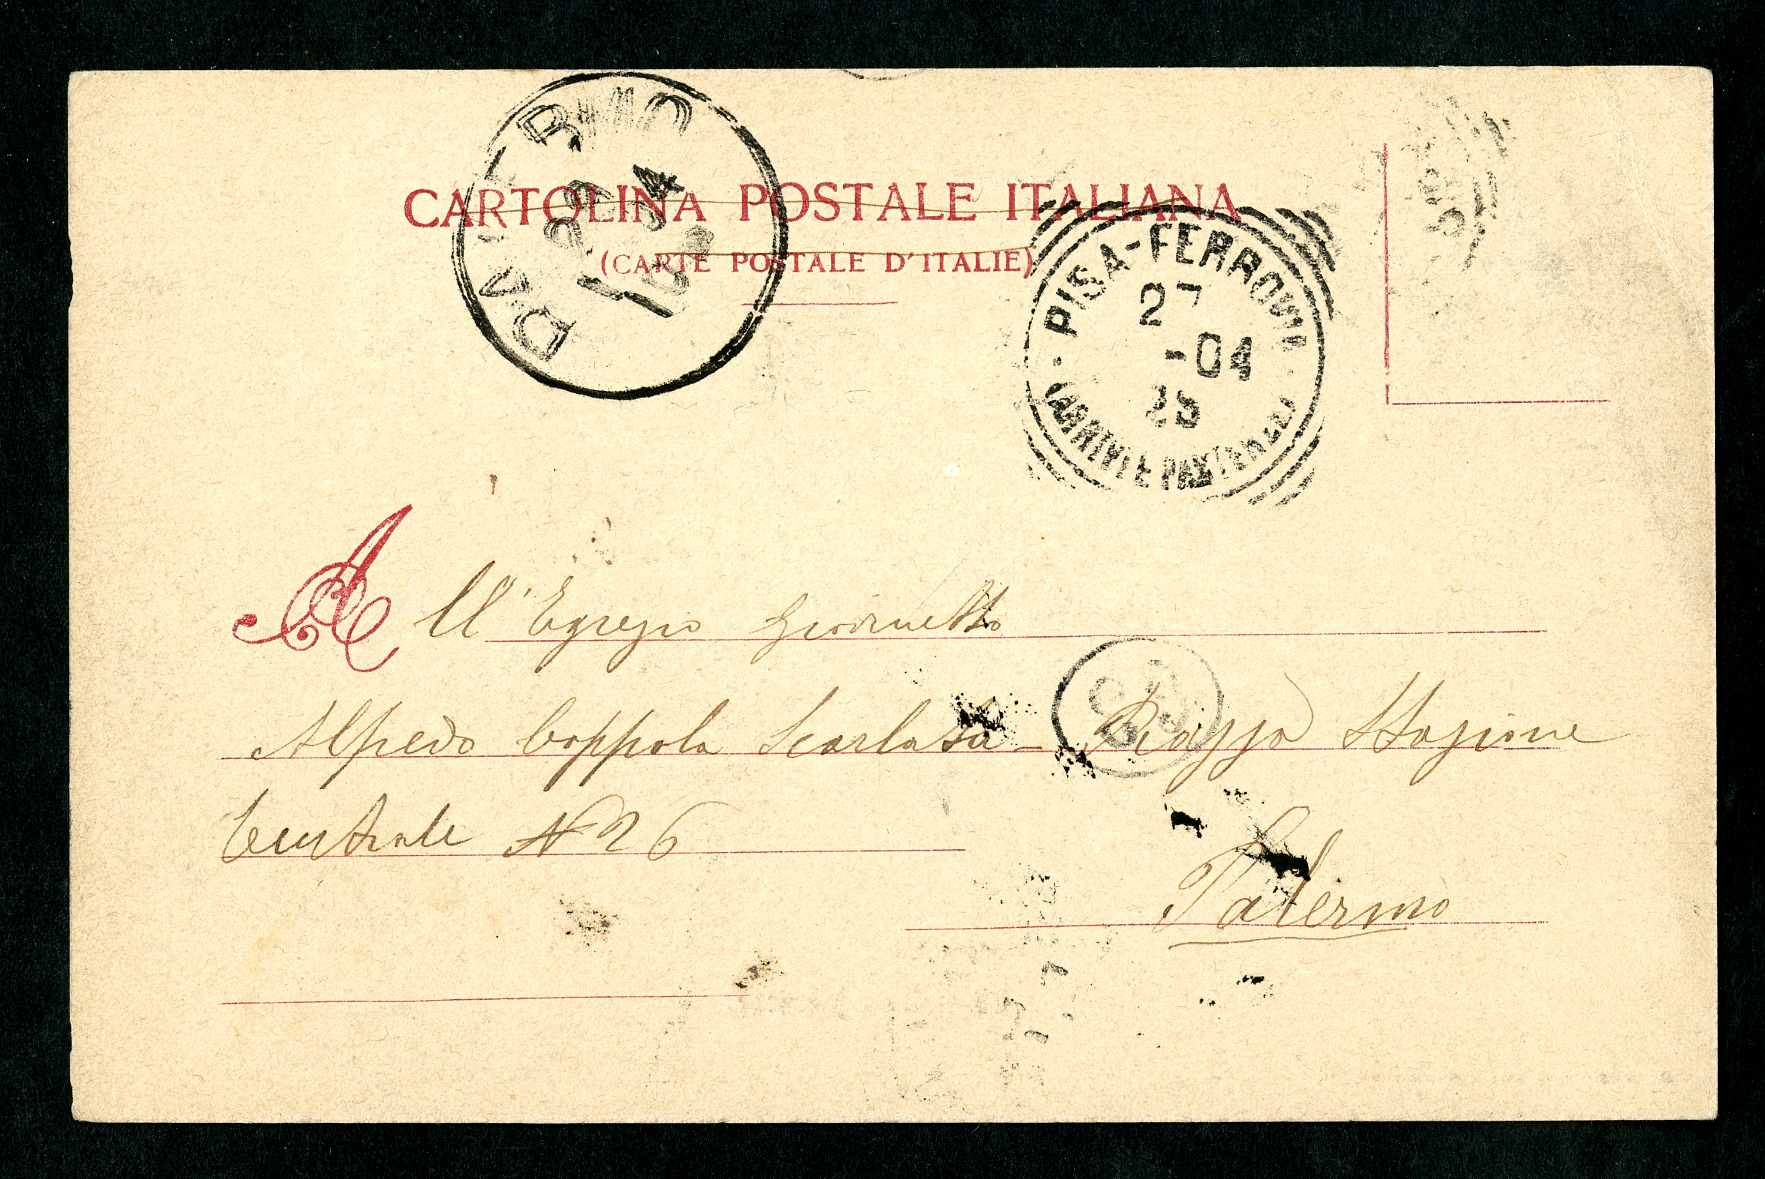 CARTOLINA POSTALE ITALIANA
(CARTE POSTALE D'ITALIE)
PISA-FERROVIA
27
-04
(ARRIVI E PARTENZE)
A ll'Egregio Giovinetto
Alfredo Coppola Scarlata - Piazza Stazione
Centrale N 26
Palermo